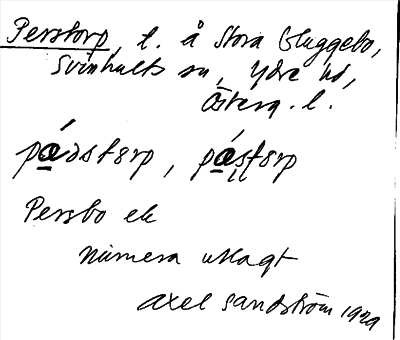 Perstorp, l. å Stora Gluggebo,
Svinhults sn, Ydre hd,
Österg. l.
pædstørp, pæstørp
Persbo ek
Numera utlagt
Axel Sandström 1929